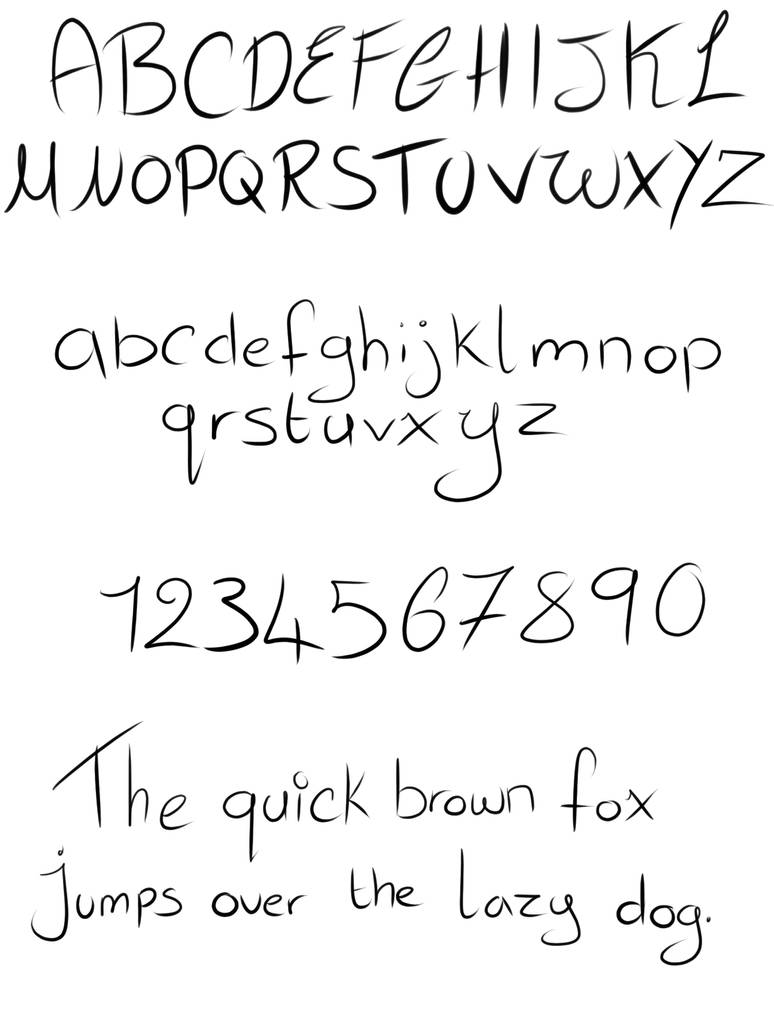 ABCDEFGHIJKL
MNOPQRSTUVWXYZ
abcdefghijklmnop
qrstuvxyz
1234567890
The quick brown fox
jumps over the lazy dog.